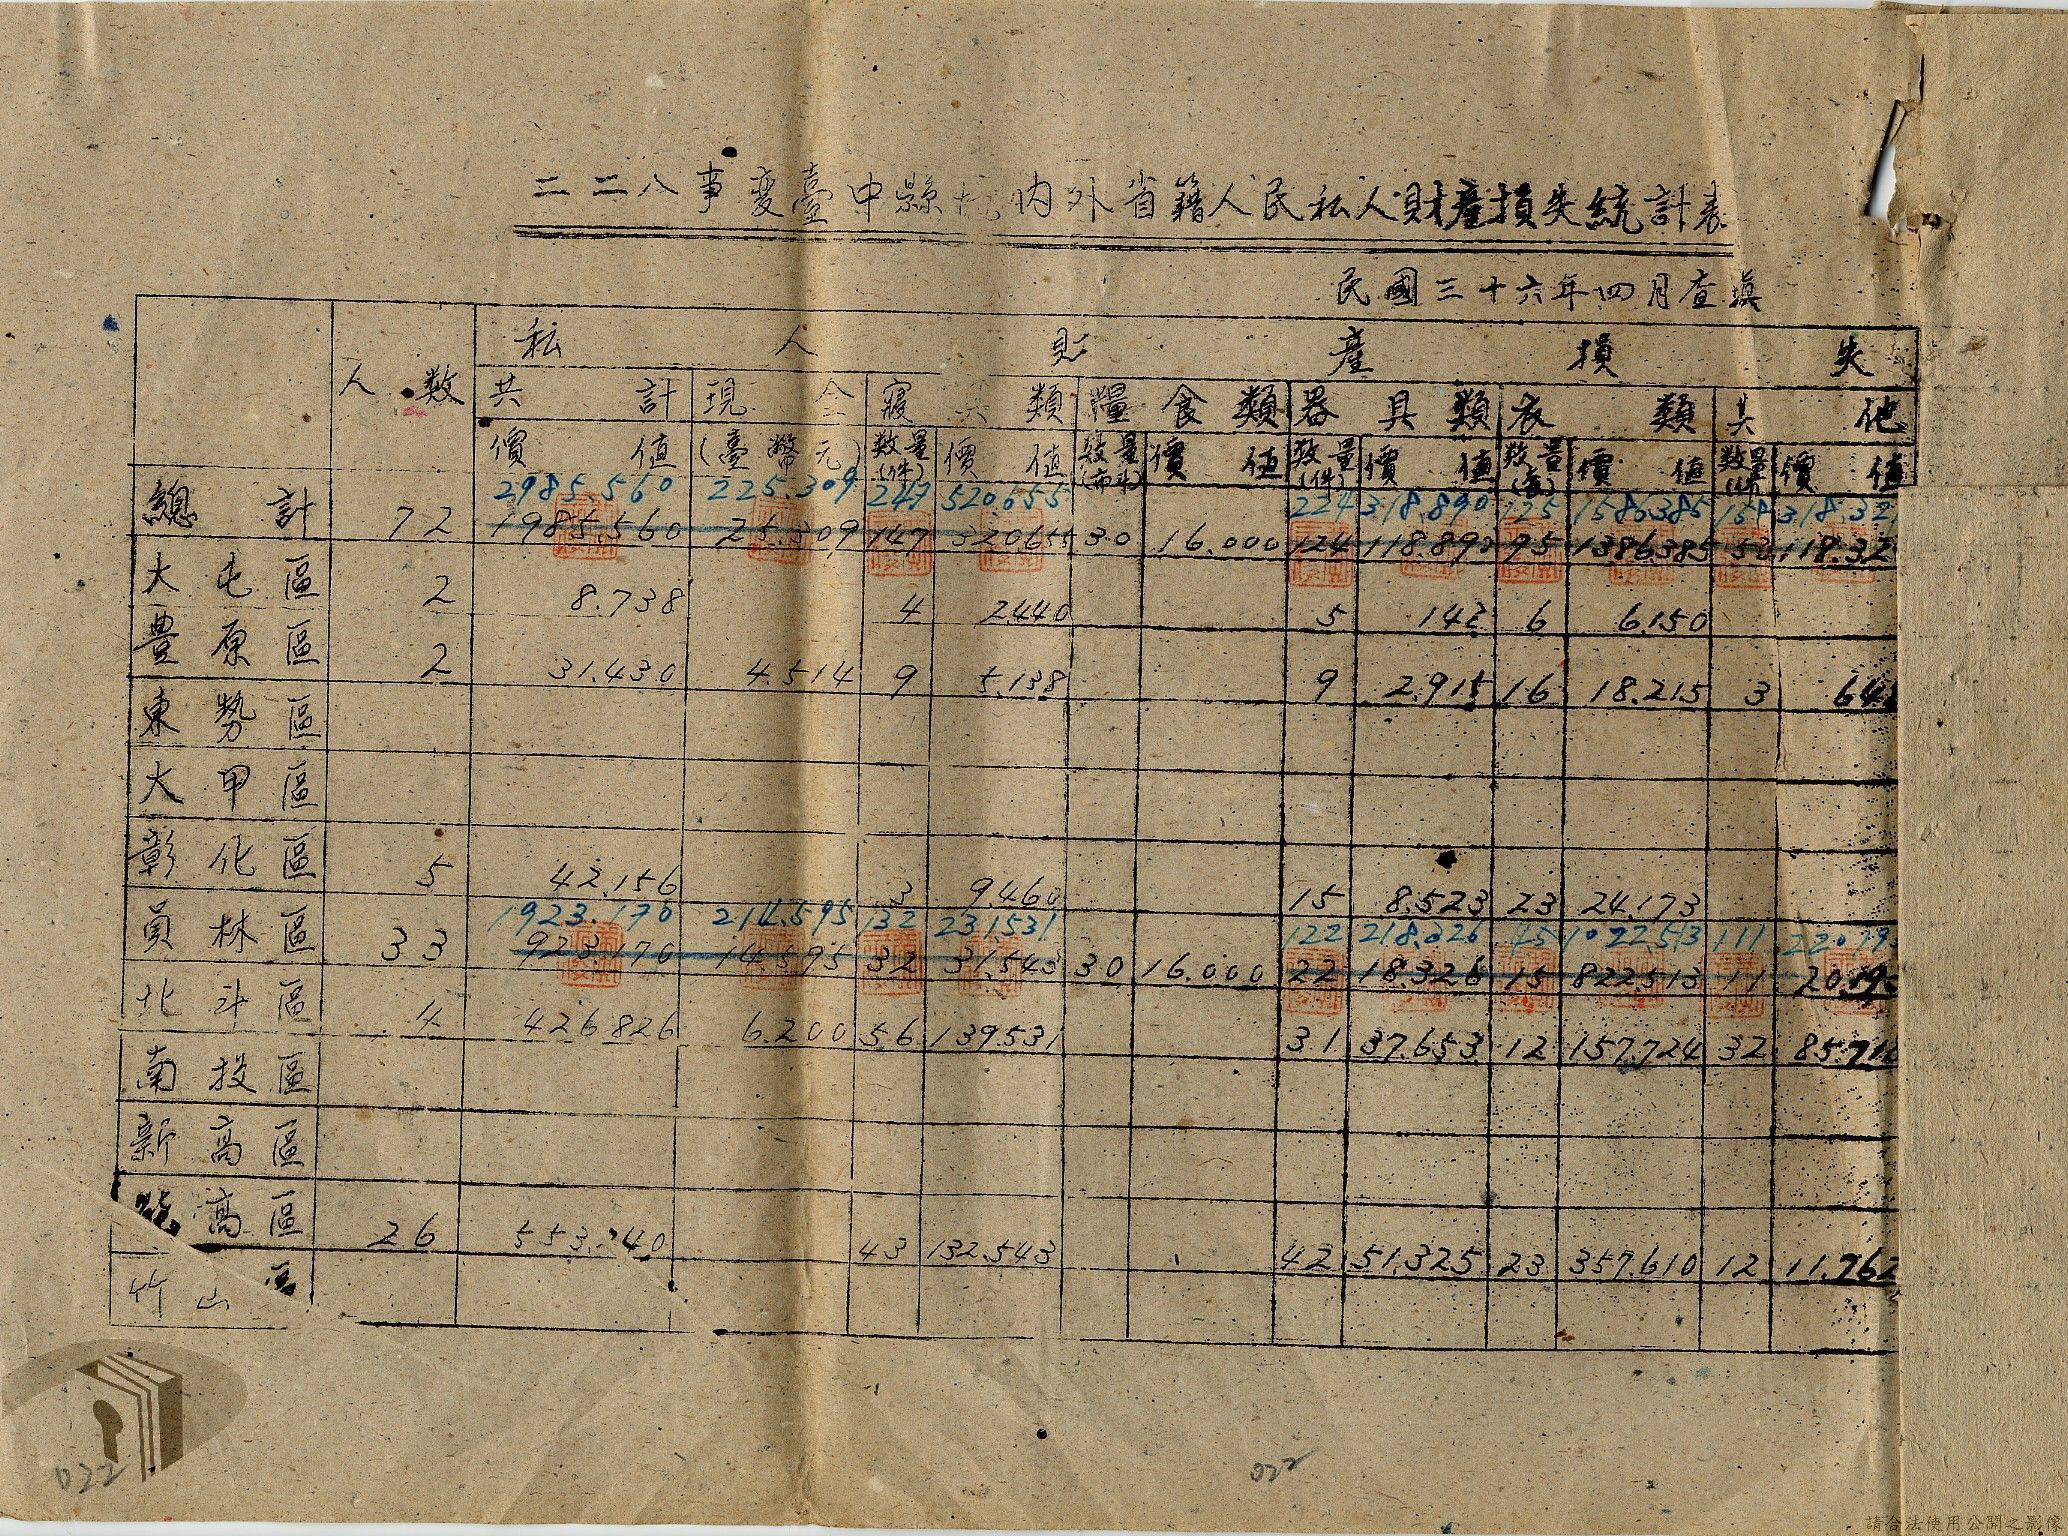 二二八事変臺中縣境内外省籍人民私人財產損失統計表
民國三十六年四月查填
人数 私人財產損失
共計 現金 寢具類 糧食類 器具類 衣類 其他
價值 (臺幣元) 数量(件) 價值 数量(市斗) 價值 数量(件) 價值 数量(套) 價值 数量(件) 價值
2985.560 225.309 247 520655 224 318.890 125 1586385 150 318.32
總計 72 1985.560 25.309 147 320655 30 16.000 124 118.890 95 1386385 50 118.32
大屯區 2 8.738 4 2440 5 142 6 6.150
豊原區 2 31.430 4.514 9 5.138 9 2.915 16 18.215 3 64
東勢區
大甲區
彰化區 5 42.156 3 9.460 15 8.523 23 24.173
1923.170 214.595 132 231.531 122 218.326 45 1022.513 111 22019
員林區 33 923.170 14.595 32 31.543 30 16.000 22 18.326 15 822.513 11 2019
北斗區 4 426826 6.200 56 139.531 31 37.653 12 157.724 32 85.71
南投區
新高區
高區 26 553. 40 43 132.543 42 51.325 23 357.610 12 11.762
竹山區
022
022
請合法使用公開之影像